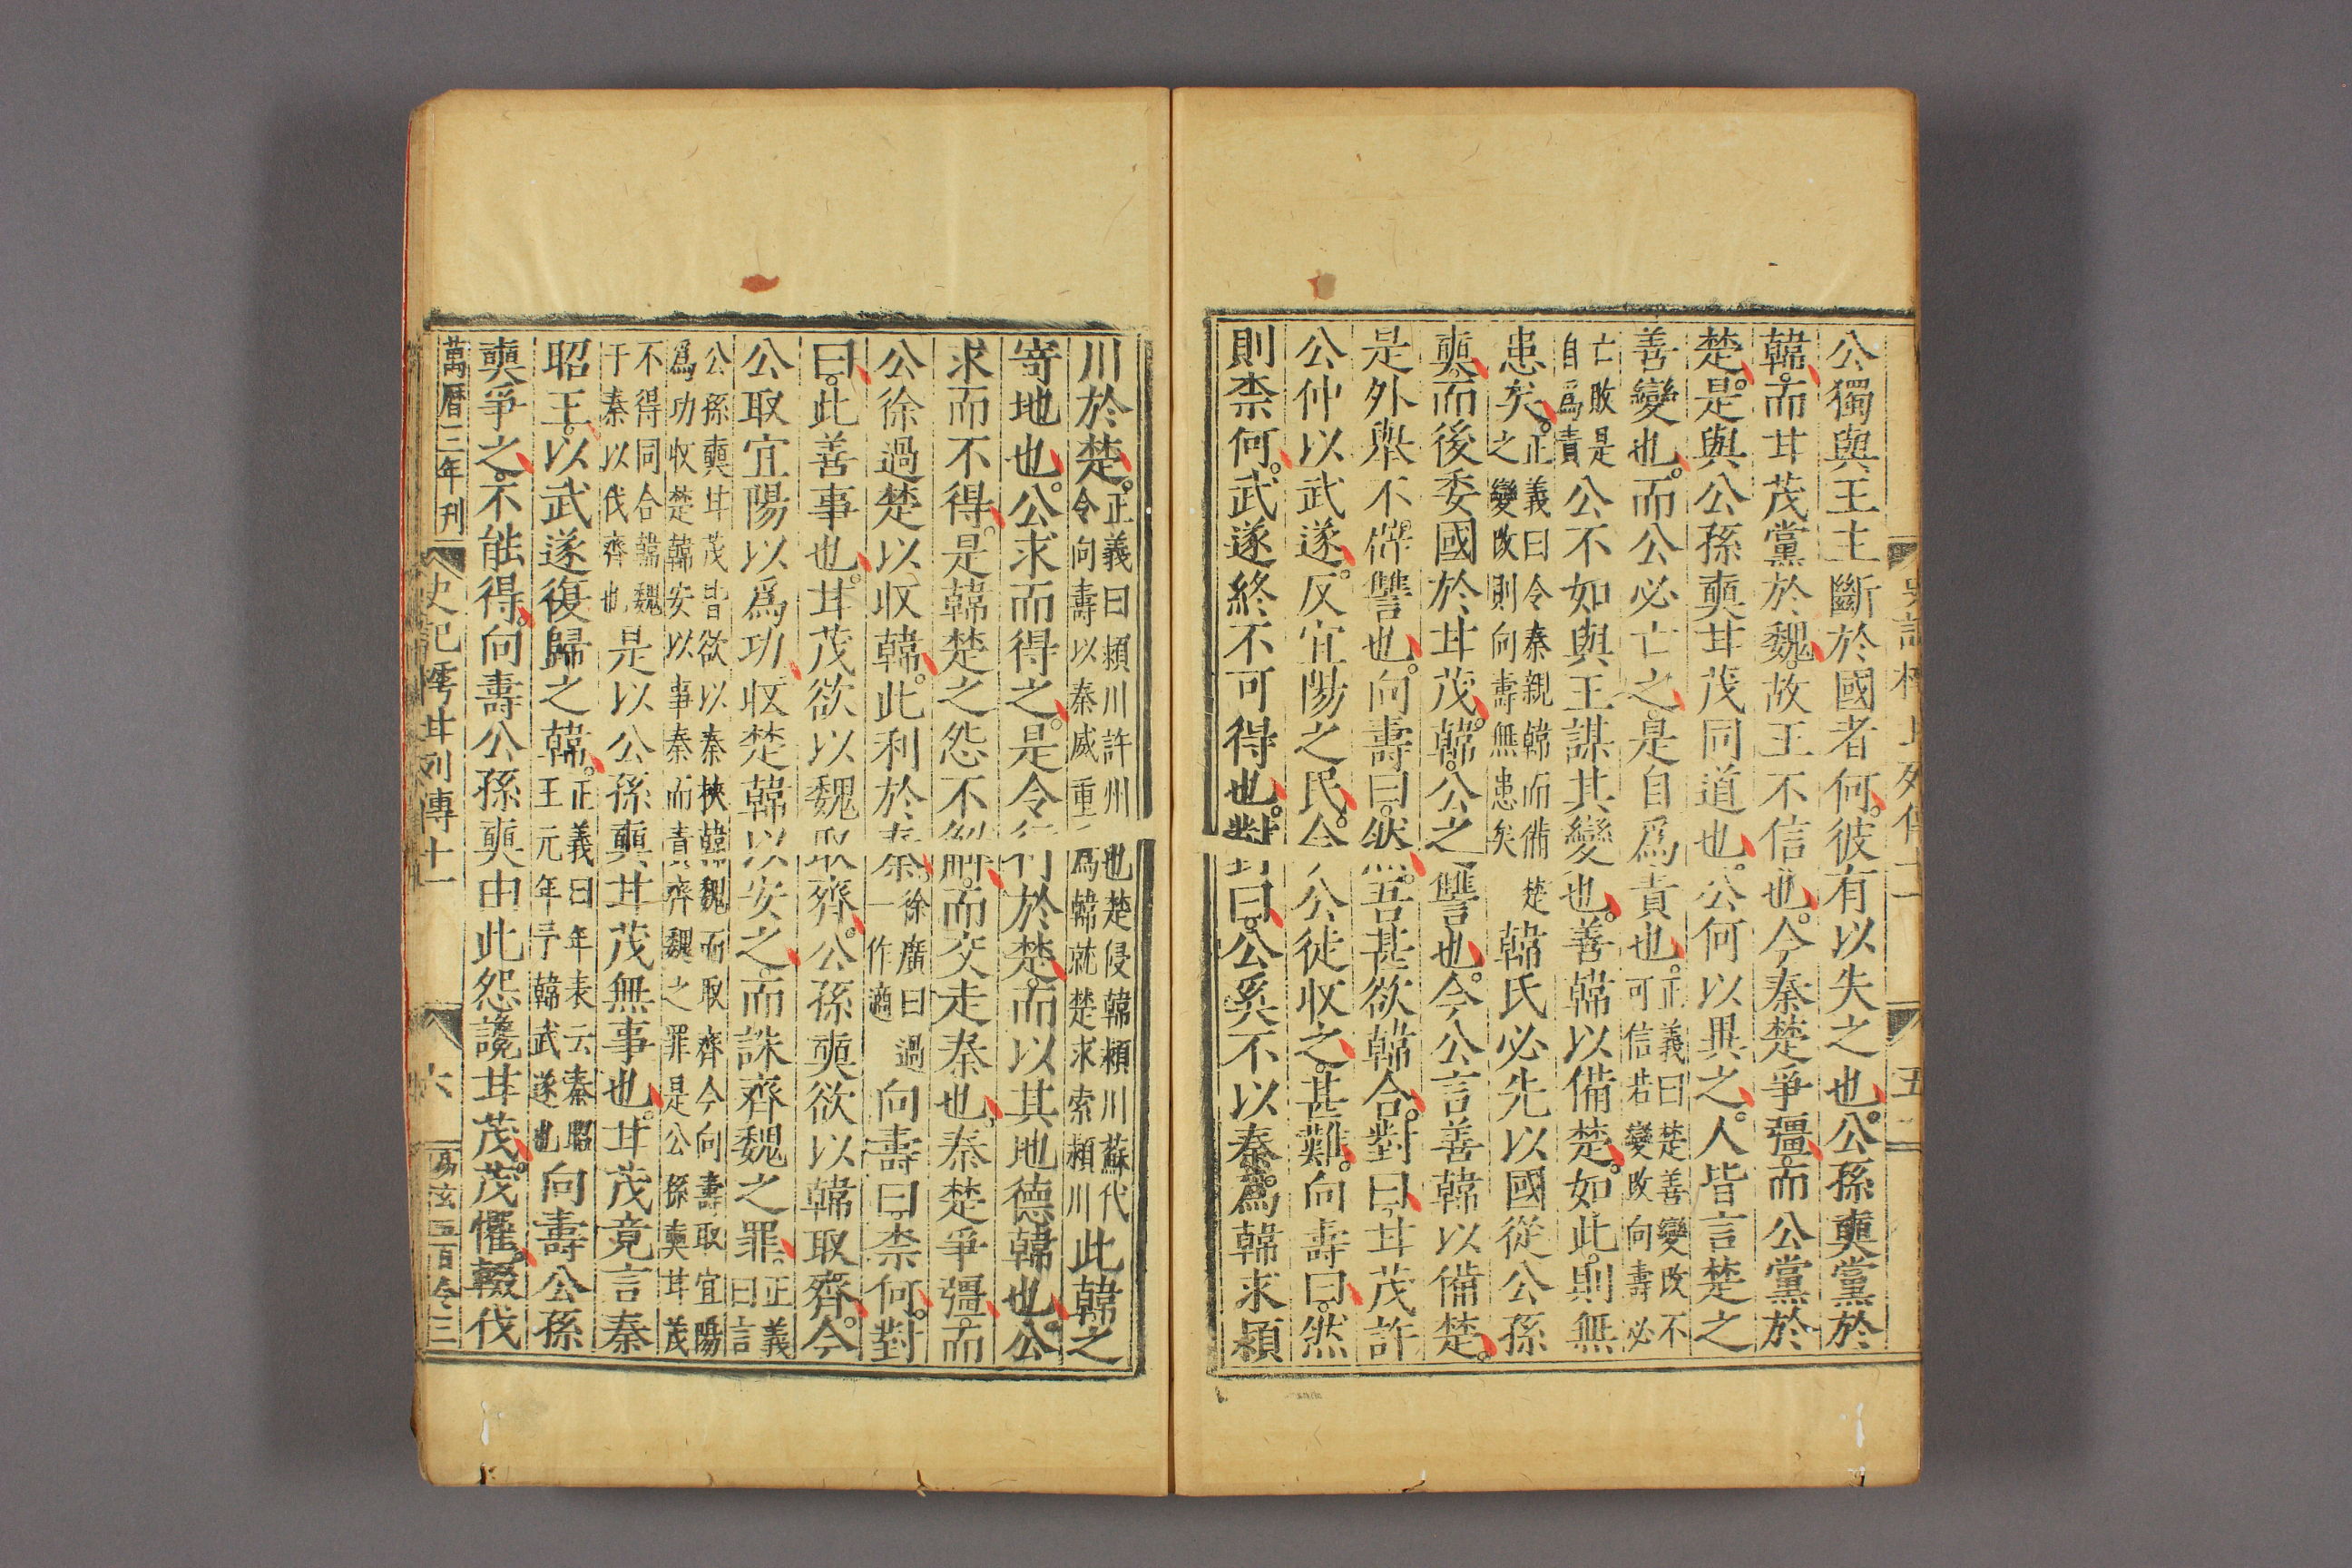 公獨與王主斷於國者何彼有以失之也公孫奭黨於
韓而甘茂黨於魏故王不信也今秦楚爭彊而公黨於
楚是與公孫奭甘茂同道也公何以異之人皆言楚之
善變也而公必亡之是自爲責也正義曰楚善變改不可信若變改向壽必
亡敗是自爲責公不如與王謀其變也善韓以備楚如此則無
患矣正義曰令秦親韓而備楚之變改則向壽無患矣韓氏必先以國從公孫
奭而後委國於甘茂韓公之讐也今公言善韓以備楚
是外舉不僻讐也向壽曰然吾甚欲韓合對曰甘茂許
公仲以武遂反宜陽之民今公徒收之甚難向壽曰然
則柰何武遂終不可得也對曰公奚不以秦爲韓求潁
川於楚正義曰潁川許州也楚侵韓潁川蘇代令向壽以秦威重爲韓就楚求索潁川此韓之
寄地也公求而得之是令行於楚而以其地德韓也公
求而不得是韓楚之怨不解而交走秦也秦楚爭彊而
公徐過楚以收韓此利於秦徐廣曰過一作適向壽曰柰何對
曰此善事也甘茂欲以魏取齊公孫奭欲以韓取齊今
公取宜陽以爲功收楚韓以安之而誅齊魏之罪正義曰言
公孫奭甘茂皆欲以秦挾韓魏而取齊今向壽取宜陽爲功收楚韓安以事秦而責齊魏之罪是公孫奭甘茂
不得同合韓魏于秦以伐齊也是以公孫奭甘茂無事也甘茂竟言秦
昭王以武遂復歸之韓正義曰年表云秦昭王元年予韓武遂也向壽公孫
奭爭之不能得向壽公孫奭由此怨讒甘茂茂懼輟伐
萬曆三年刊
史記樗甘列傳十一
六